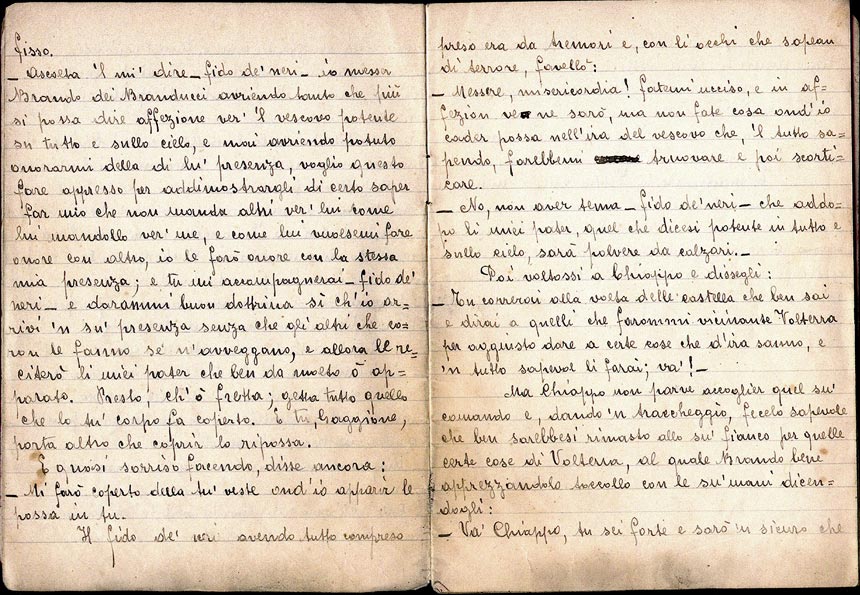 fisso.
— Ascolta 'l mi' dire — fido de' neri — io messer
Brando dei Branducci avriendo tanto che più
si possa dire affezione ver' 'l vescovo potente
su tutto e sullo cielo, e mai avriendo potuto
onorarmi della di lu' presenza, voglio questo
fare appresso per addimostrargli di certo saper
far mio che non manda altri ver' lui come
lui mandollo ver' me, e come lui vuolsemi fare
onore con altro, io le farò onore con la stessa
mia presenza; e tu mi accompagnerai — fido de'
neri — e darammi buon dottrina sì ch'io ar-
rivi 'n su' presenza senza che gli altri che co-
ron le fanno se n'avveggano, e allora le re-
citerò li miei pater che ben da molto ò ap-
parato. Presto, ch'ò fretta; getta tutto quello
che lo tu' corpo fa coperto. E tu, Gaggione,
porta altro che coprir lo ripossa.
E quasi sorriso facendo, disse ancora:
— Mi farò coperto della tu' veste ond'io apparir le
possa in tu.
Il fido de' neri avendo tutto compreso
preso era da tremori e, con li occhi che sapean
di terrore, favellò:
— Messere, misericordia! fatemi ucciso, e in af-
fezion ve ne sarò, ma non fate cosa ond'io
cader possa nell'ira del vescovo che, 'l tutto sa-
pendo, farebbemi truovare e poi scorti-
care.
— No, non aver tema — fido de' neri — che addo-
po li miei pater, quel che dicesi potente in tutto e
sullo cielo, sarà polvere da calzari. —
Poi voltossi a Chiappo e dissegli:
— Tu correrai alla volta delle castella che ben sai
e dirai a quelli che farommi vicinante Volterra
per aggiusto dare a certe cose che d'ira sanno, e
'n tutto sapevol li farai; va'! —
Ma Chiappo non parve accoglier quel su'
comando e, dando 'n traccheggio, fecelo sapevole
che ben sarebbesi rimasto allo su' fianco per quelle
certe cose di Volterra, al quale Brando bene
apprezzandolo toccollo con le su' mani dicen-
dogli:
— Va' Chiappo, tu sei forte e sarò 'n sicuro che